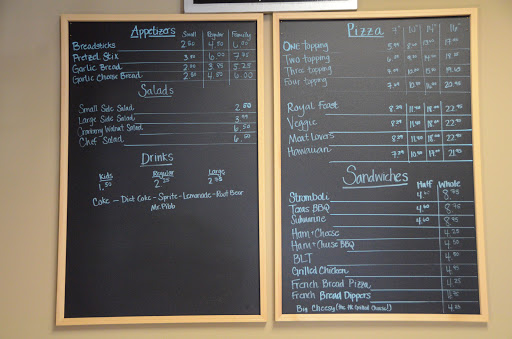 Appetizers Small Regular Family
Breadsticks 2.50 4.50 6.00
Pretzel Stix 3.50 6.00 7.95
Garlic Bread 2.00 3.95 5.25
Garlic Cheese Bread 2.50 4.50 6.00
Salads
Small Side Salad 2.50
Large Side Salad
Cranberry Walnut Salad 6.50
Chef Salad 6.50
Drinks
Kids Regular Large
1.50 2.25 2.75
Coke - Diet Coke - Sprite - Lemonade - Root Beer
Mr. Pibb
Pizza 7" 10" 14" 16"
ONE topping 17.00
Two topping
Three topping
Four topping 20.95
Royal Feast 8.29 11.95 18.00 22.95
Veggie 8.29 11.95 18.00 22.95
Meat Lovers 8.29 11.95 18.00 22.95
Hawaiian 7.29 21.95
Sandwiches Half Whole
Stromboli 8.75
Texas BBQ 4.60 8.75
Submarine 4.60 8.75
Ham + Cheese 4.25
Ham + Cheese BBQ 4.50
BLT 4.50
Grilled Chicken 4.95
French Bread Pizza 4.25
French Bread Dippers
Big Cheesy (The PR Grilled Cheese!) 4.50